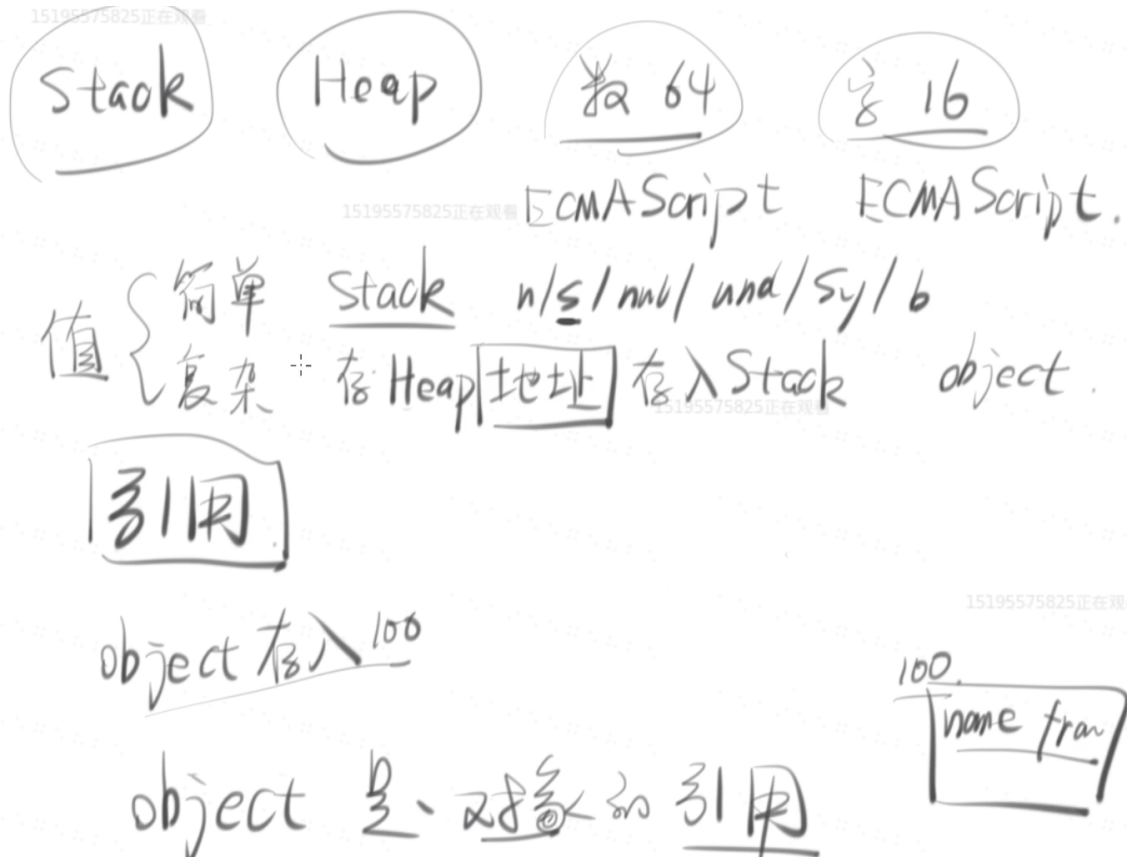 15195575825正在观看
Stack Heap 数 64 字 16
15195575825正在观看
ECMAScript ECMAScript.
值 简单 Stack n/s/null/und/Sy/b
复杂 存 Heap 地址 存入Stack object.
15195575825正在观看
引用
15195575825正在观
object 存入100
100.
name fran
object 是、对象的引用